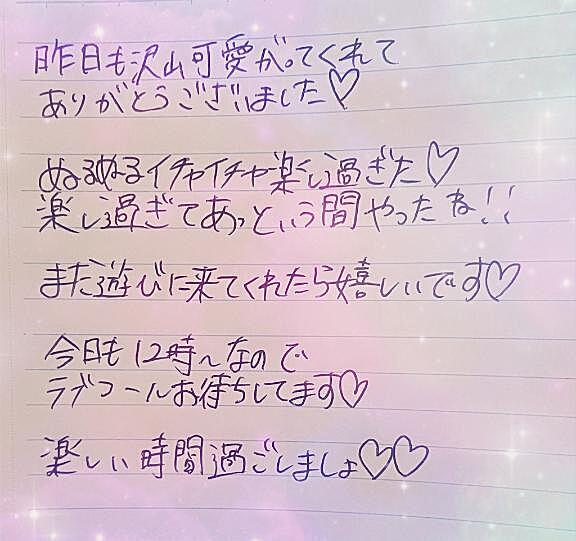 昨日も沢山可愛がってくれて
ありがとうございました♡
ぬるぬるイチャイチャ楽し過ぎた♡
楽し過ぎてあっという間やったね!!
また遊びに来てくれたら嬉しいです♡
今日も12時〜なので
ラブコールお待ちしてます♡
楽しい時間過ごしましょ♡♡